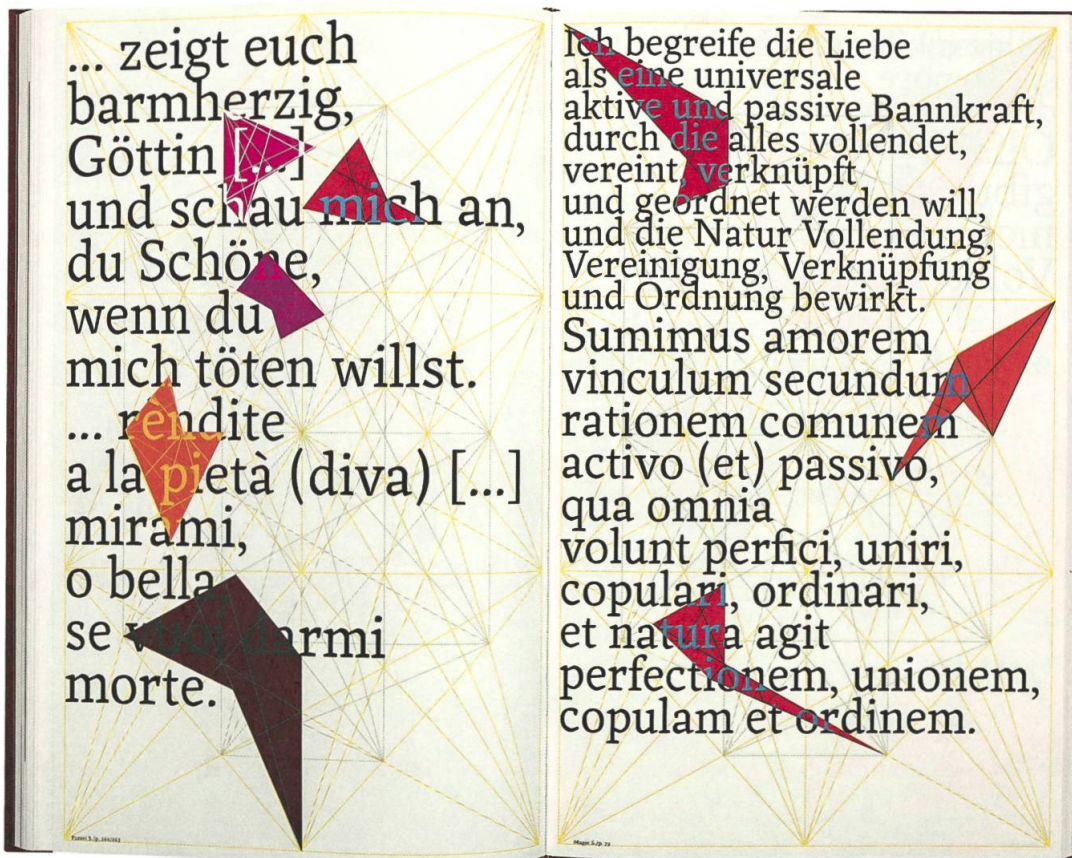 ... zeigt euch
barmherzig,
Göttin [...]
und schau mich an,
du Schöne,
wenn du
mich töten willst.
... rendite
a la pietà (diva) [...]
mirami,
o bella,
se vuoi darmi
morte.
Furori S./p. 262/263
Ich begreife die Liebe
als eine universale
aktive und passive Bannkraft,
durch die alles vollendet,
vereint, verknüpft
und geordnet werden will,
und die Natur Vollendung,
Vereinigung, Verknüpfung
und Ordnung bewirkt.
Sumimus amorem
vinculum secundum
rationem comunem
activo (et) passivo,
qua omnia
volunt perfici, uniri,
copulari, ordinari,
et natura agit
perfectionem, unionem,
copulam et ordinem.
Magie S./p. 79